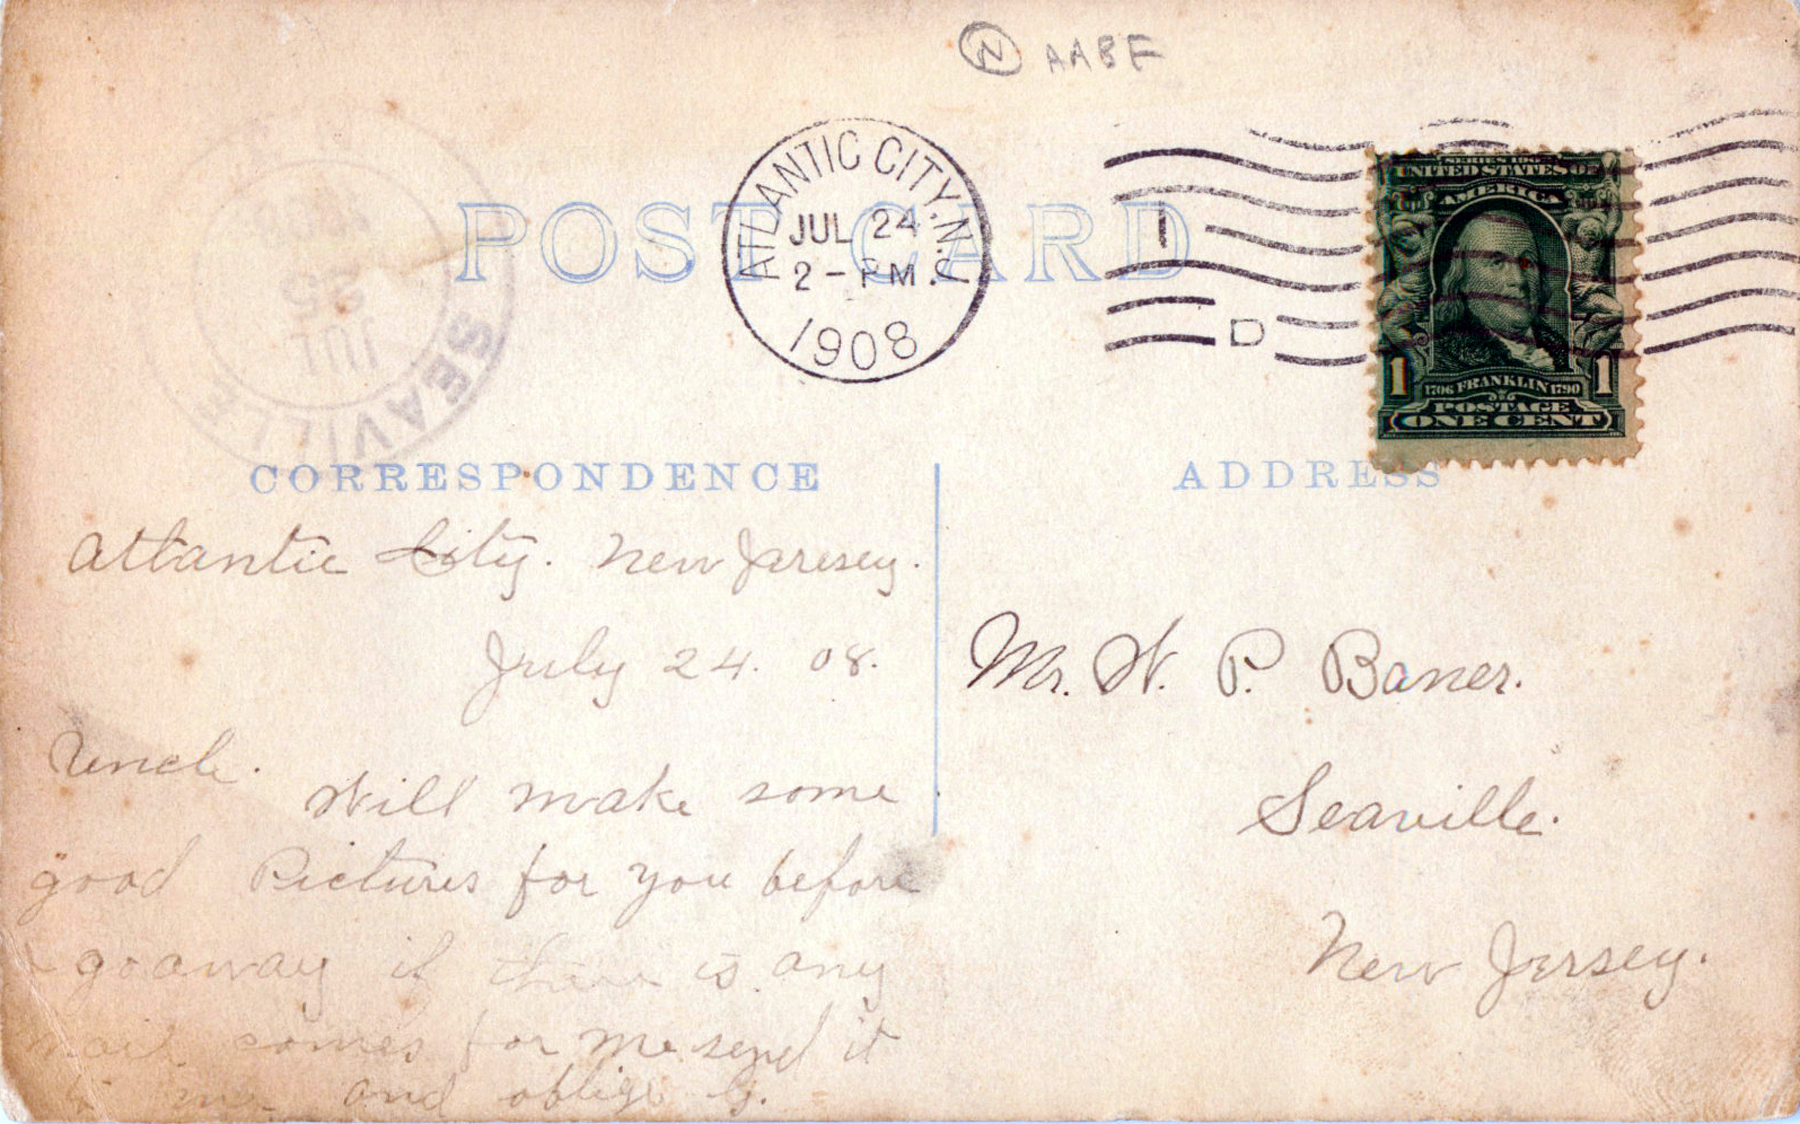 N AABF
ATLANTIC CITY, N.J.
JUL 24
2 - PM
1908
1
D
SERIES 1902
UNITED STATES OF
AMERICA
1 1
1706 FRANKLIN 1790
POSTAGE
ONE CENT
SEAVILLE
JUL
25
POST CARD
CORRESPONDENCE
ADDRESS
Atlantic City. New Jeresey.
July 24. 08.
Uncle.
Will make some
good Pictures for you before
I go away if there is any
mail comes for me send it
to me and oblige G.
Mr. W. P. Baner.
Seaville.
New Jersey.